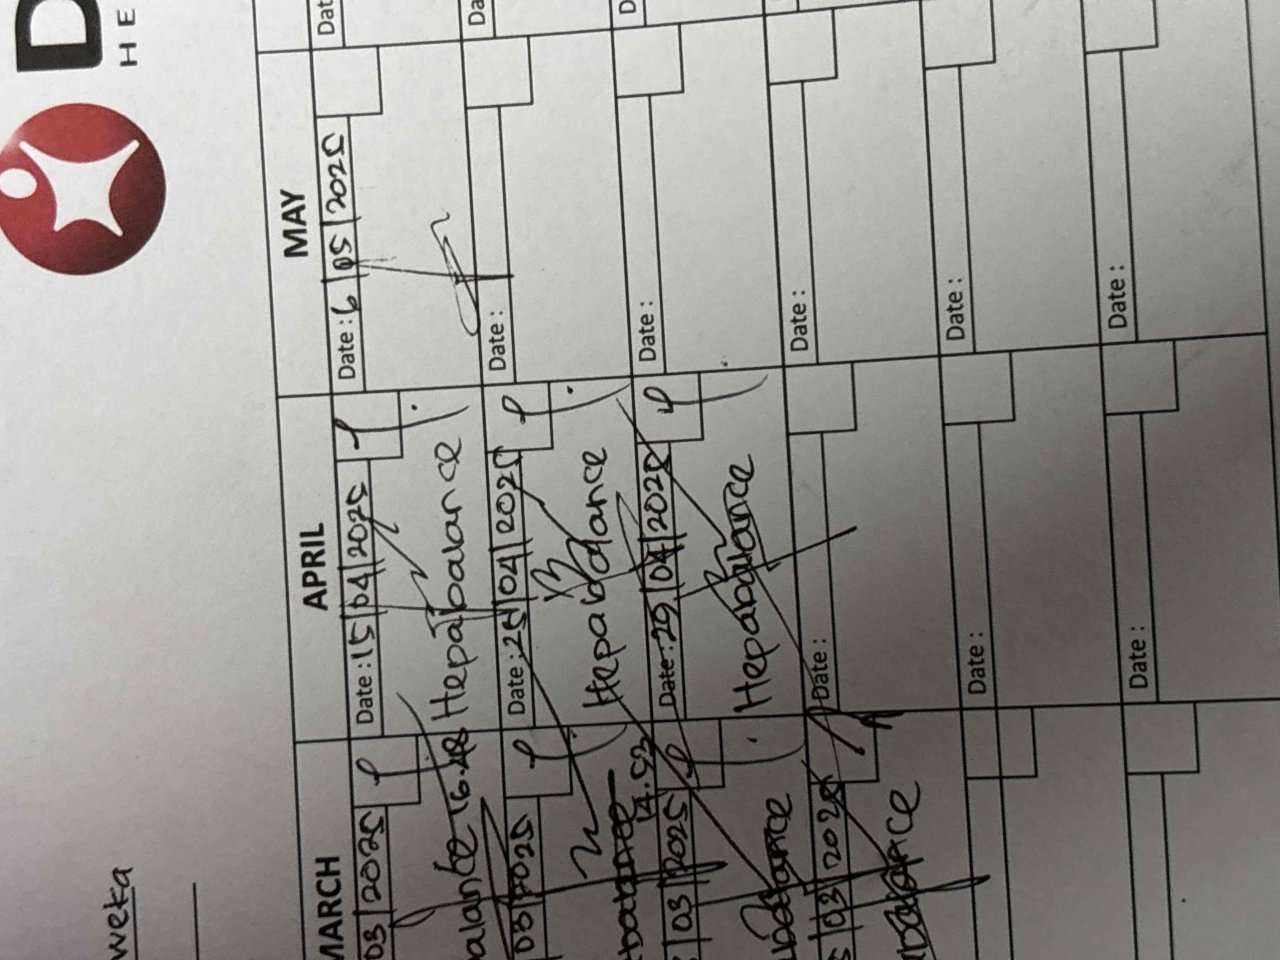 D
HE
weka
MARCH
03 2025
alance 16.48
03 2025
balance 14.53
03 2025
03 2025
APRIL
Date: 15 04 2025
Hepabalance
Date: 25 04 2025
Hepabalance
Date: 29 04 2025
Hepabalance
Date:
Date:
Date:
MAY
Date: 6 05 2025
Date:
Date:
Date:
Date:
Date:
Dat
Da
D